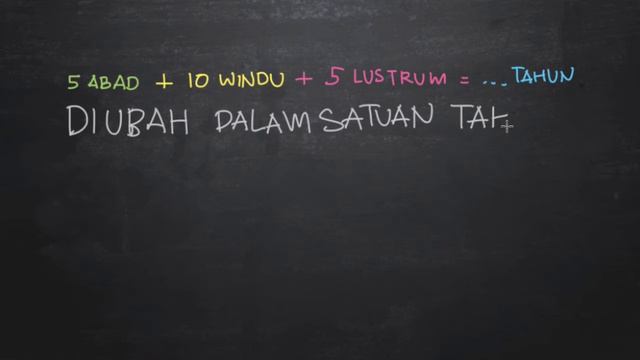 5 ABAD + 10 WINDU + 5 LUSTRUM = ... TAHUN
DIUBAH DALAM SATUAN TAH